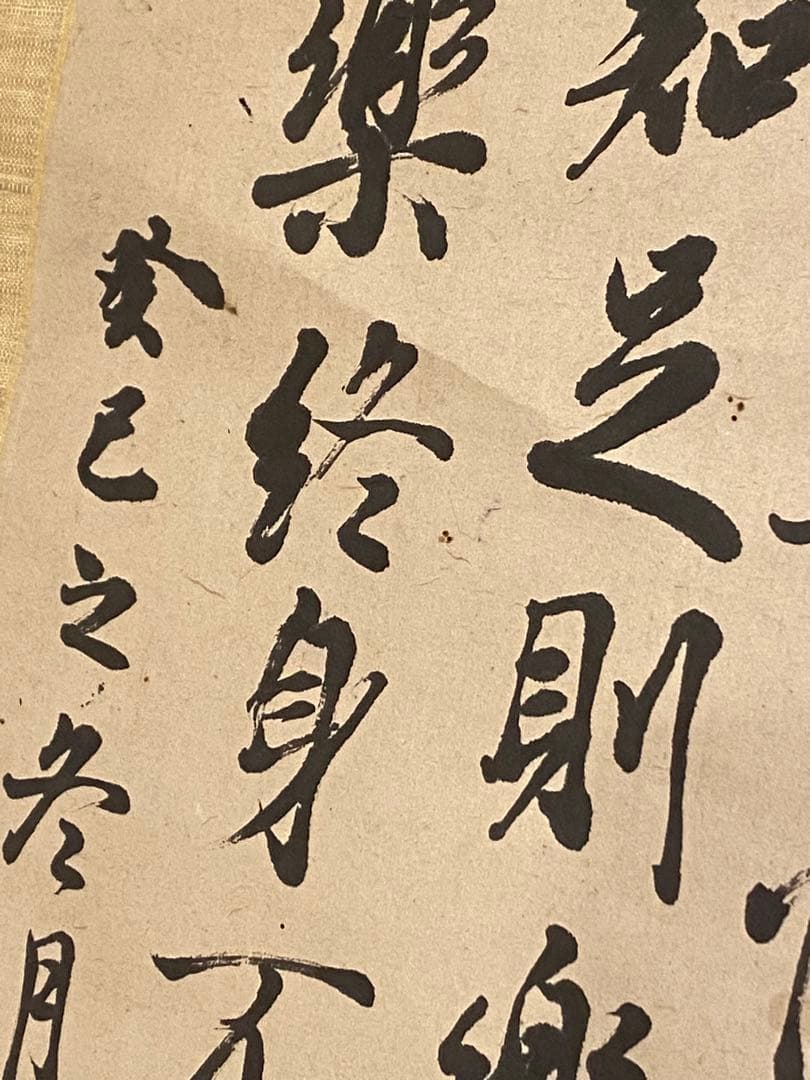 知足則樂
樂終身不
癸巳之冬月